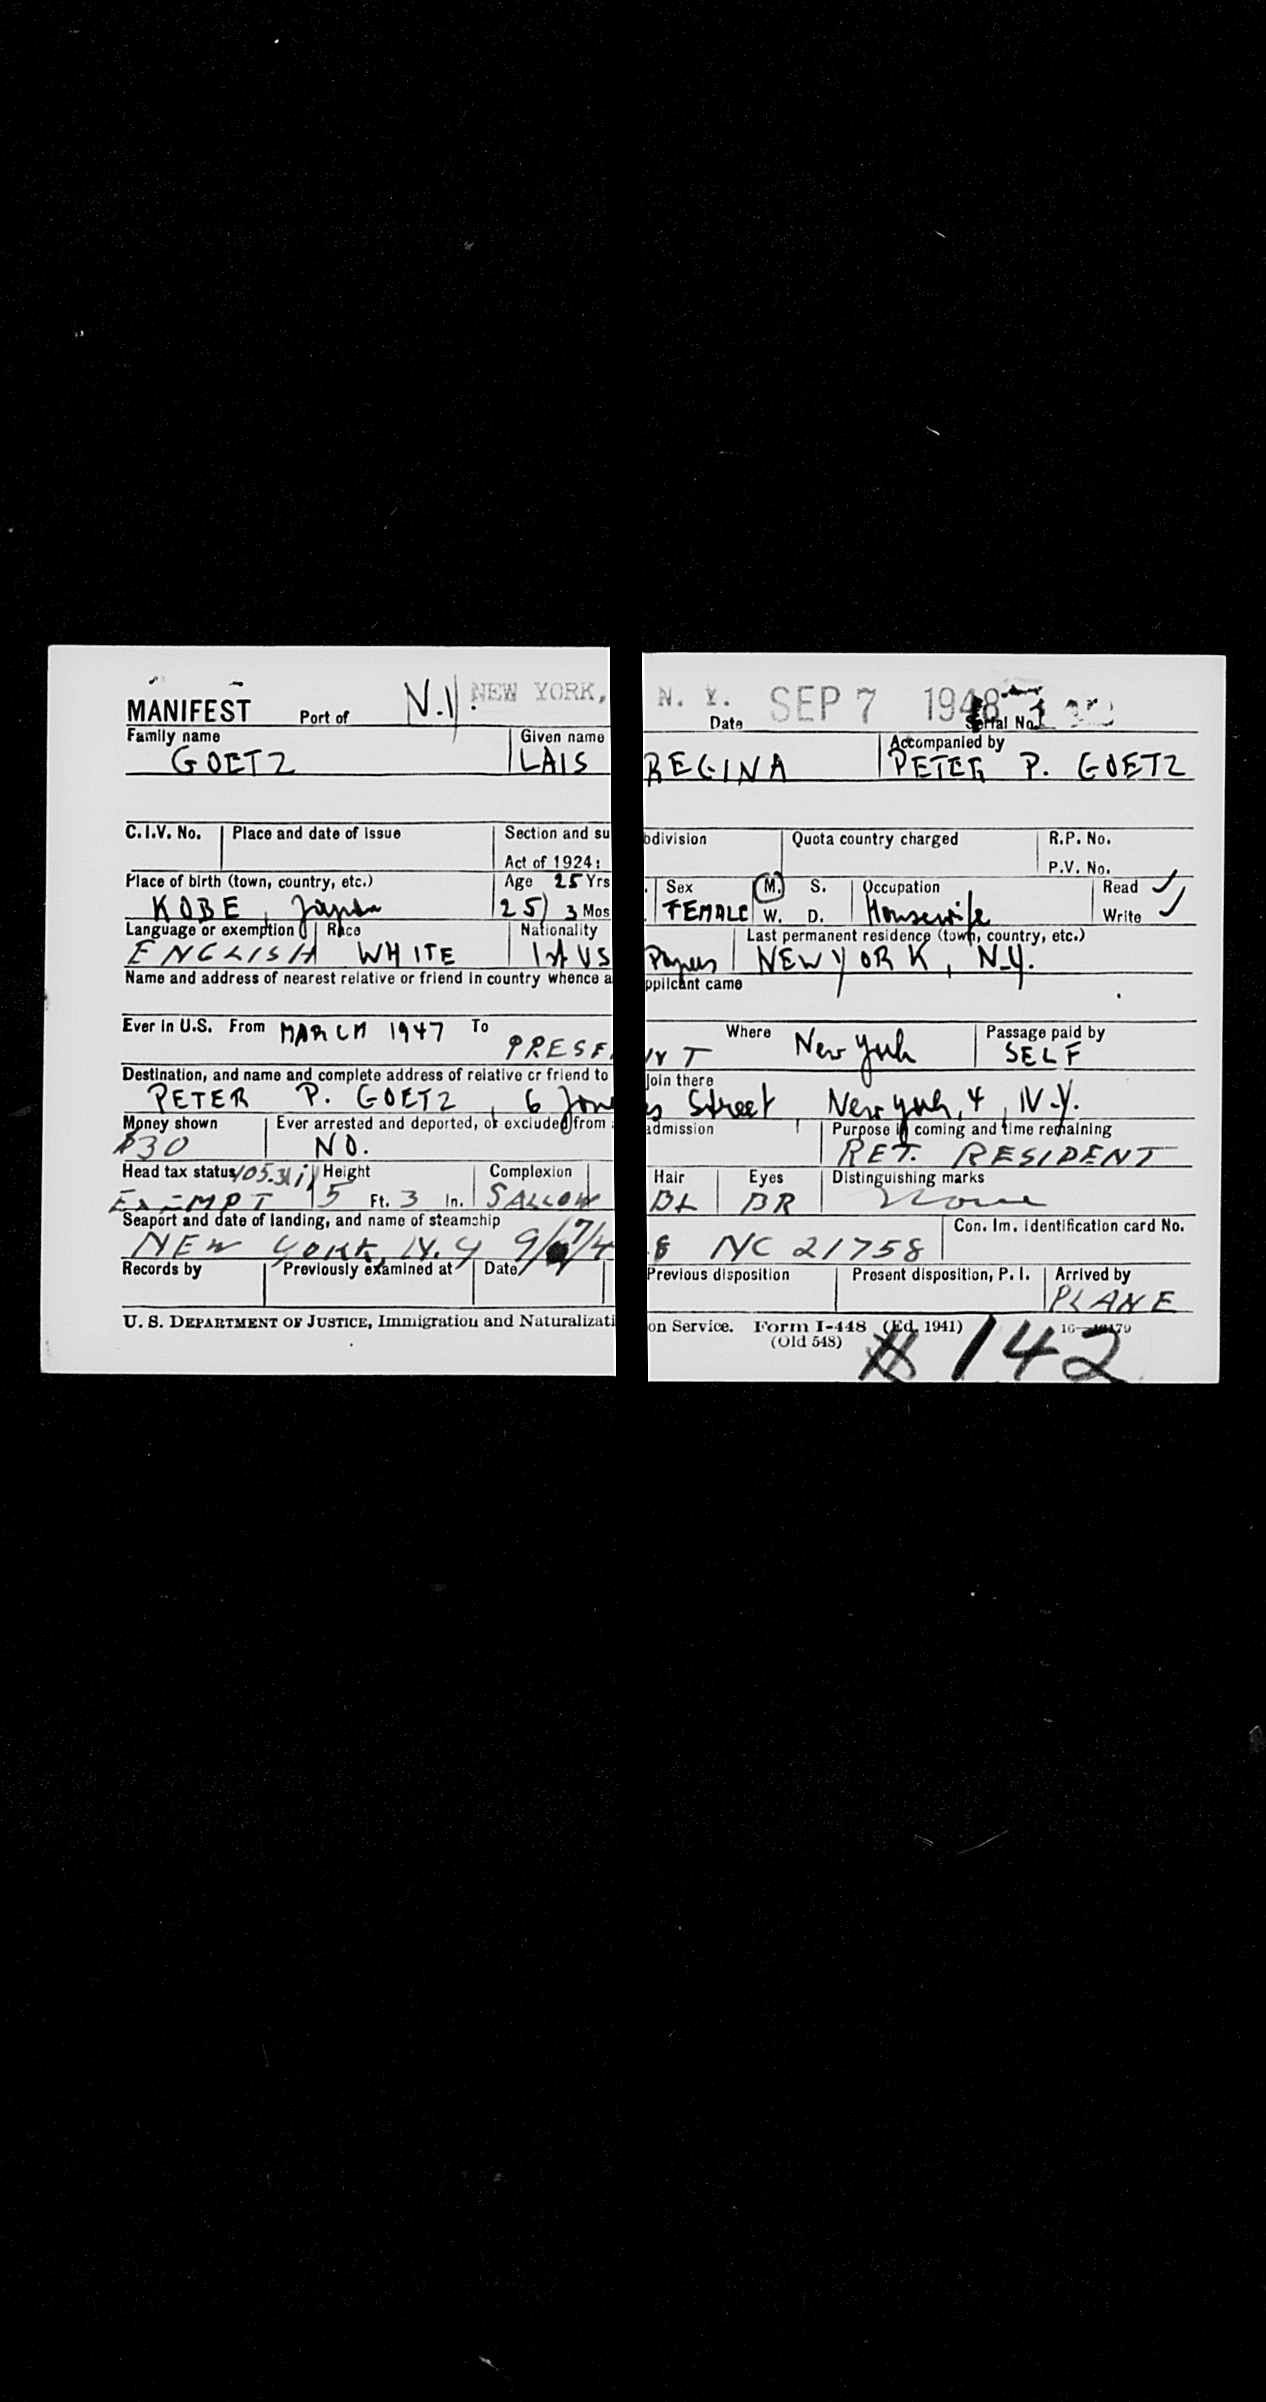 MANIFEST Port of N.Y. NEW YORK, N. Y. Date SEP 7 1948 Serial No.
Family name Given name Accompanied by
GOETZ LAIS REGINA PETER P. GOETZ
C.I.V. No. Place and date of issue Section and subdivision Quota country charged R.P. No.
Act of 1924: P.V. No.
Place of birth (town, country, etc.) Age 25 Yrs. Sex M. S. Occupation Read ✓
KOBE, Japan 25) 3 Mos. FEMALE W. D. Housewife Write ✓
Language or exemption Race Nationality Last permanent residence (town, country, etc.)
ENGLISH WHITE 1st US Papers NEW YORK, N.Y.
Name and address of nearest relative or friend in country whence applicant came
Ever in U.S. From MARCH 1947 To PRESENT Where New York Passage paid by
SELF
Destination, and name and complete address of relative or friend to join there
PETER P. GOETZ, 6 Jones Street, New York, 4, N.Y.
Money shown Ever arrested and deported, or excluded from admission Purpose in coming and time remaining
$30 NO. RET. RESIDENT
Head tax status 105.3 Height Complexion Hair Eyes Distinguishing marks
EXEMPT 5 Ft. 3 In. SALLOW BL BR None
Seaport and date of landing, and name of steamship Con. Im. Identification card No.
NEW YORK, N.Y 9/7/48 NC 21758
Records by Previously examined at Date Previous disposition Present disposition, P. I. Arrived by
PLANE
U. S. DEPARTMENT OF JUSTICE, Immigration and Naturalization Service. Form I-448 (Ed. 1941)
(Old 548)
142